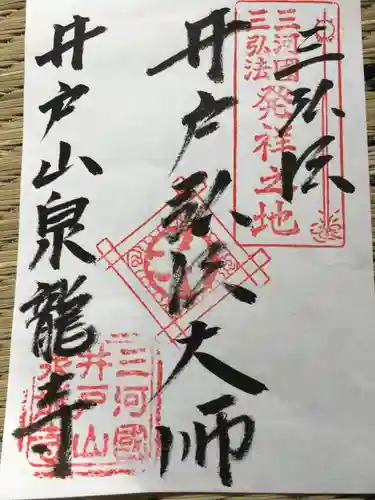 三弘法
三河國
三弘法
発祥之地
井戸弘法大師
井戸山泉龍寺
三河國
井戸山